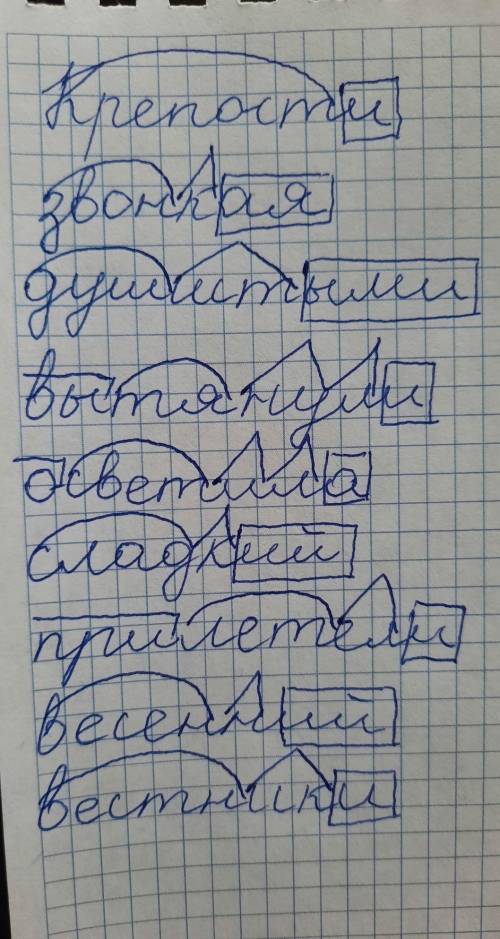 Крепости
звонкая
душистыми
вытянули
осветила
сладкий
прилетели
весенний
вестники